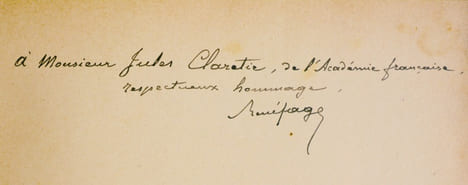 à Monsieur Jules Claretie, de l'Académie française,
respectueux hommage.
René fage